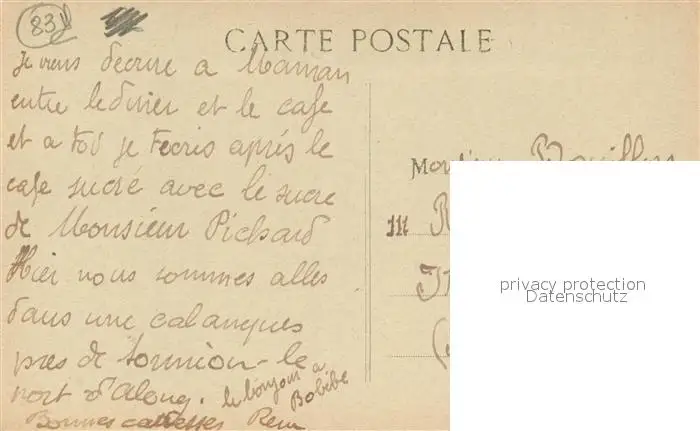 83
CARTE POSTALE
Je viens decrire a Maman
entre le diner et le cafe
et a toi je t'ecris aprés le
cafe sucré avec le sucre
de Monsieur Pichard
Hier nous sommes alles
dans une calanques
pres de Sormiou - le
port d'Along. le bonjour a
Bobébe
Bonnes caresses Rene
Monsieur
111
privacy protection
Datenschutz